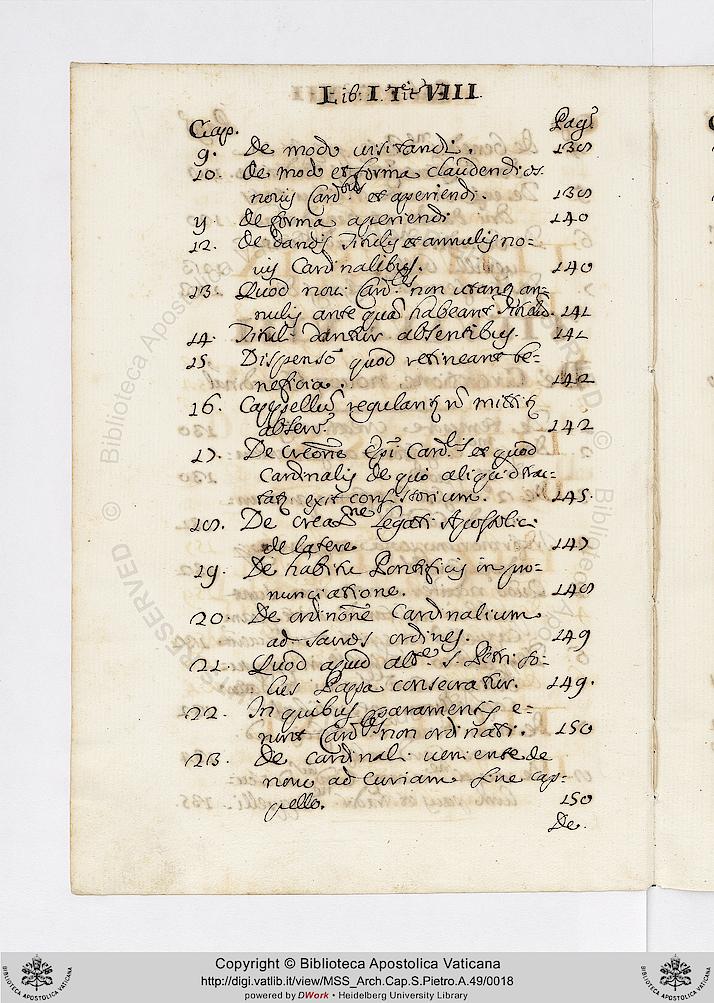 Lib: I. Tit VIII.
Cap. Pag.
9. De modo uisitandi. 138
10. De modo et forma claudendi os
nouis Card.bus et aperiendi. 138
11 De forma aperiendi 140
12. De dandis titulis et annulis no=
uis Cardinalibus. 140
13. Quod noui Card.les non utantq an=
nulis ante quā habeant titulū. 141
14. Tituli dantur absentibus. 141
15. Dispensō quod retineant be=
neficia. 142
16. Cappellus regulariq mittiq
absens. 142
17. De creōne Epī Card.lis et quod
Cardinalis de quo aliquid trac=
tatq exit consistorium. 145.
18. De creaōne Legati Apostolici
de latere 147
19. De habitu Pontificis in pro=
nunciatione. 148
20. De ordinōne Cardinalium
ad sacros ordines. 149
21. Quod apud alt.e s. Petri so=
lus Papa consecratur. 149.
22. In quibus sacramentis e=
runt Card.les non ordinati. 150
23. De Cardinali ueniente de
nouo ad Curiam sine cap=
pello. 150
De
Copyright © Biblioteca Apostolica Vaticana
http://digi.vatlib.it/view/MSS_Arch.Cap.S.Pietro.A.49/0018
powered by DWork • Heidelberg University Library